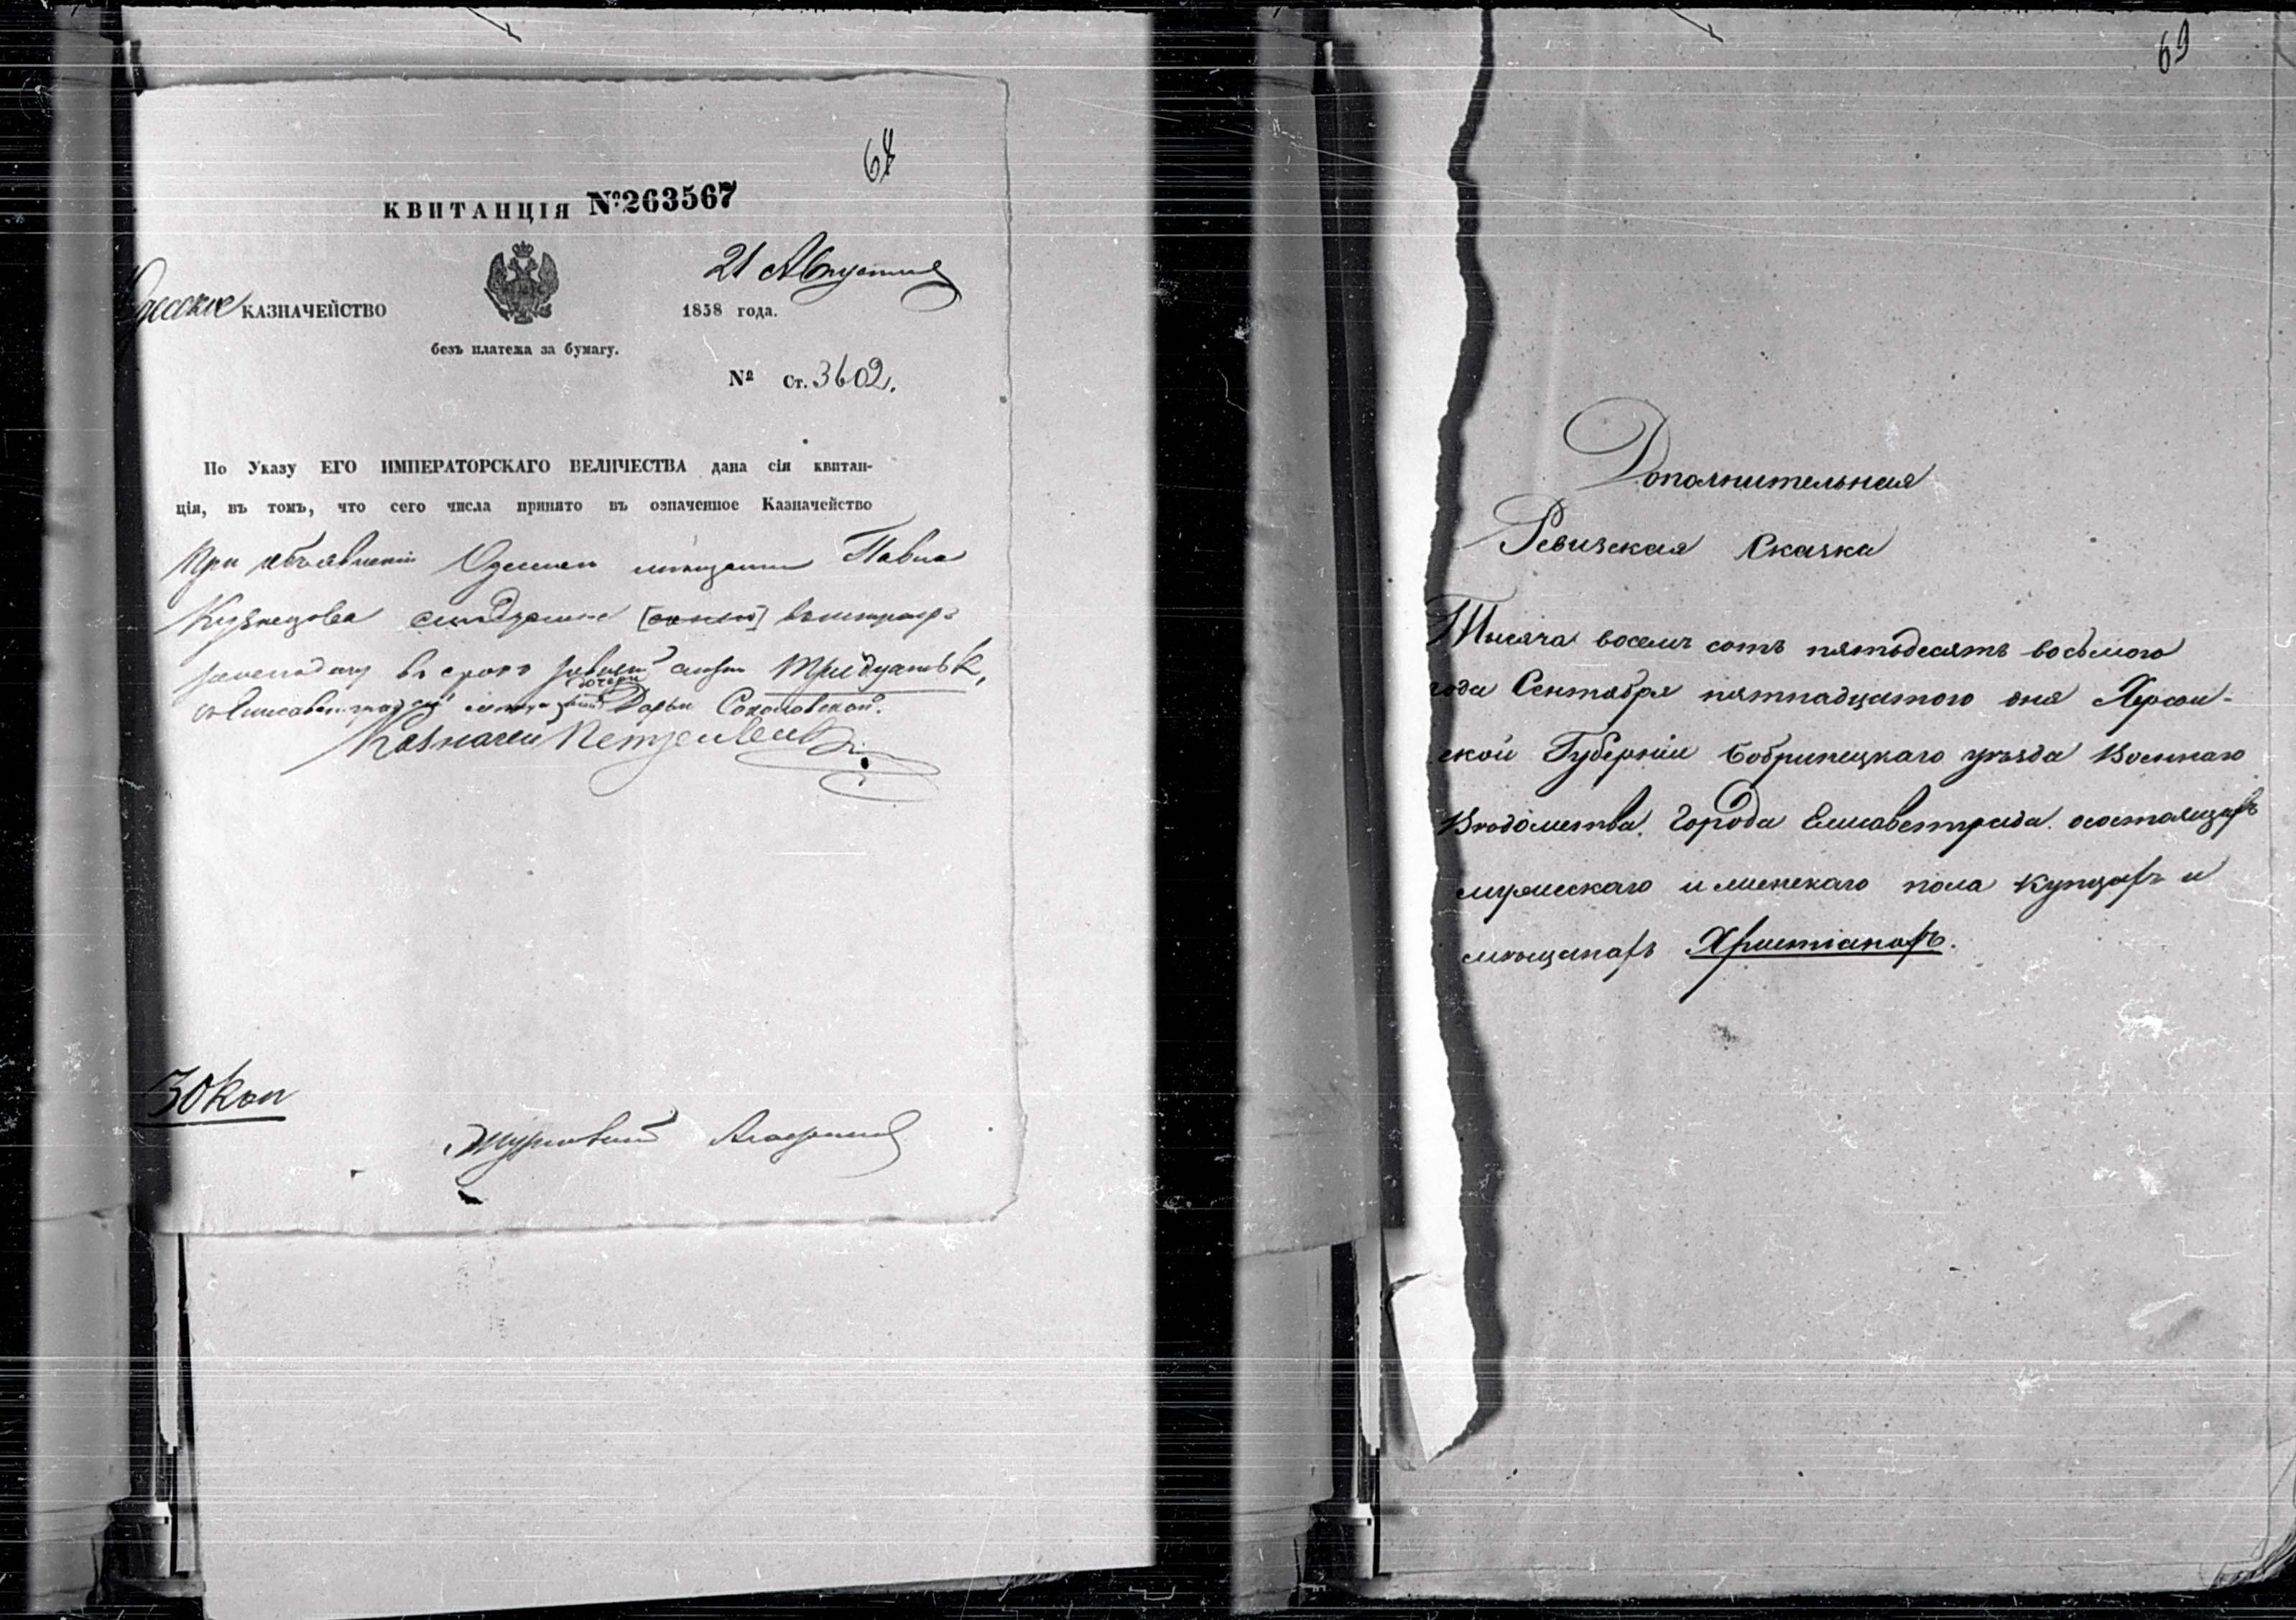 68
КВИТАНЦІЯ №263567
21 Августа
Одесское КАЗНАЧЕЙСТВО
1858 года.
безъ платежа за бумагу.
№ Ст. 3602.
По Указу ЕГО ИМПЕРАТОРСКАГО ВЕЛИЧЕСТВА дана сія квитан-
ція, въ томъ, что сего числа принято въ означенное Казначейство
При объявленіи Павла
Кузнецова
въ срокъ тридцать к,
дочери
Дарьи Соколовской.
Казначей
30 коп
69
Дополнительная
Ревизская Сказка
Тысяча восемь сотъ пятьдесятъ восьмого
года Сентября пятнадцатого дня Херсон-
ской Губерніи Бобринецкаго уѣзда Военнаго
Вѣдомства. Города Елисаветграда. о состоящихъ
мужескаго и женскаго пола купцахъ и
мѣщанахъ Христіанахъ.